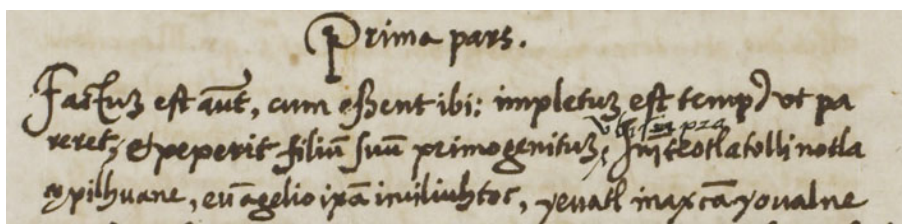 Prima pars.
Factuʒ est aūt, cum eßent ibi: impletuʒ est temp9 vt pa
reret, & peperit filiū suū primogenituʒ, Initeotlatolli notla
çopilhuane, euāgelio ipā iniliuhtoc, yeuatl inaxcā youalne